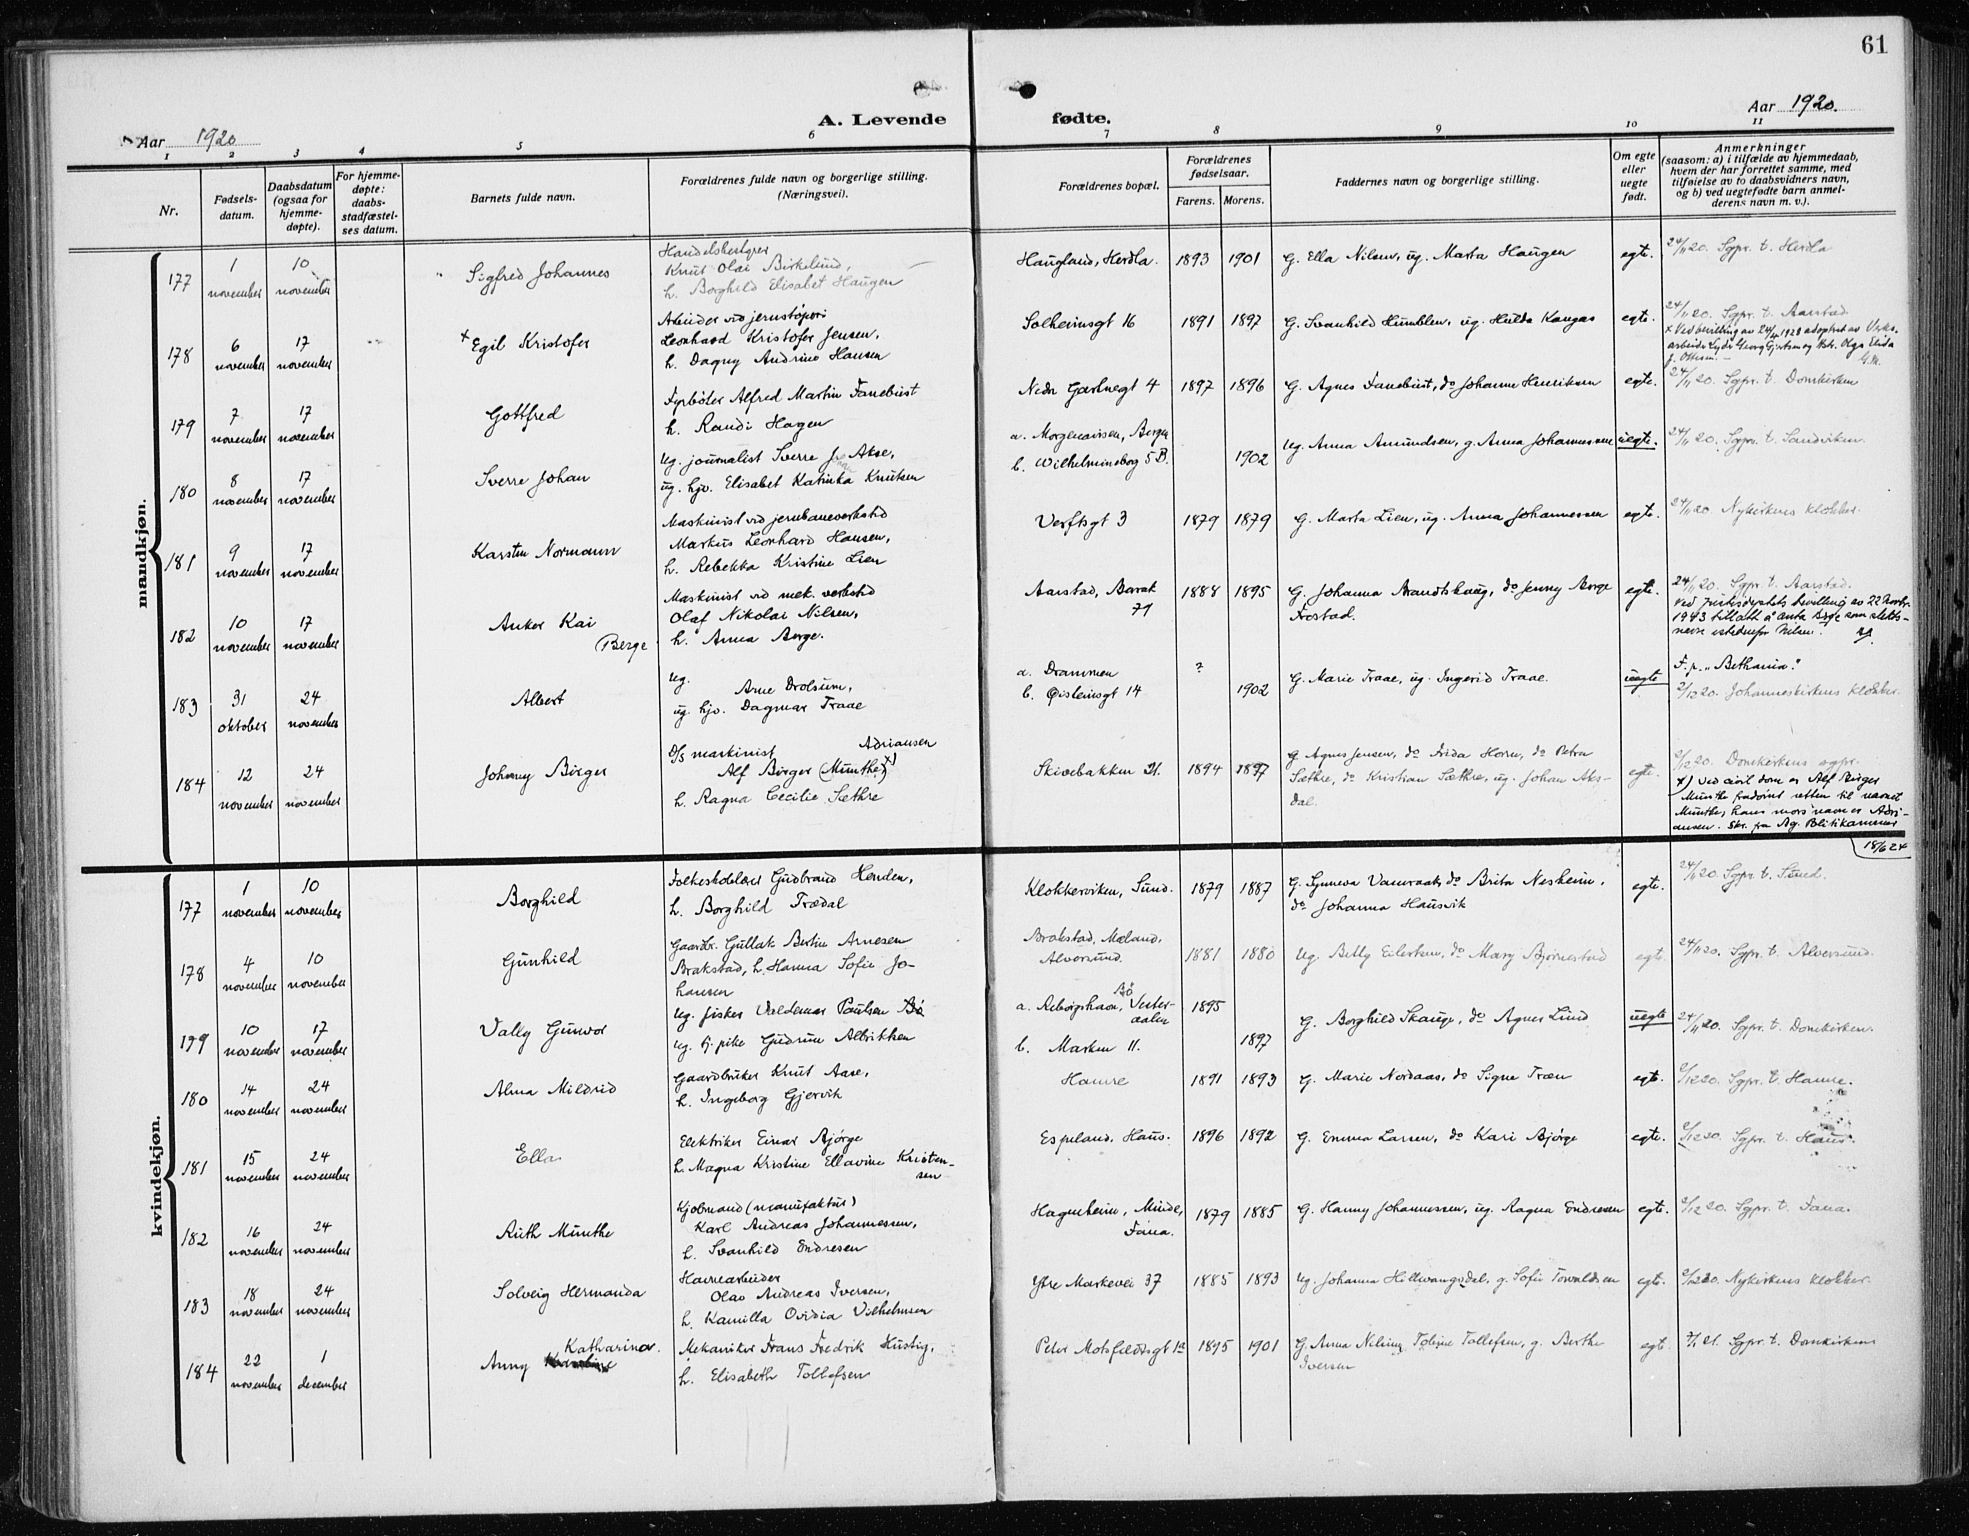 61
Aar 1920
A. Levende fødte.
Aar 1920.
1 2 3 4 5 6 7 8 9 10 11
Nr.
Fødsels-
datum.
Daabsdatum
(ogsaa for
hjemme-
døpte).
For hjemme-
døpte:
daabs-
stadfæstel-
ses datum.
Barnets fulde navn.
Forældrenes fulde navn og borgerlige stilling.
(Næringsvei).
Forældrenes bopæl.
Forældrenes
fødselsaar.
Farens. Morens.
Faddernes navn og borgerlige stilling.
Om egte
eller
uegte
født.
Anmerkninger
(saasom: a) i tilfælde av hjemmedaab,
hvem der har forrettet samme, med
tilføielse av to daabsvidners navn,
og b) ved uegtefødte barn anmel-
derens navn m. v.).
mandkjøn.
177
1 november
10 november
Sigfred Johannes
Handelsbestyrer
Knut Olai Birkelund,
h. Borghild Elisabet Haugen
Haugland, Herdla.
1893 1901
G. Ella Nilsen, ug. Marta Haugen
egte.
24/11 20. Sgpr. t. Herdla
178
6 november
17 november
+ Egil Kristofer
Arbeider ved jernstøperi
Leonhard Kristofer Jensen,
h. Dagny Andrine Hansen
Solheimsgt 16
1891 1897
G. Svanhild Humblen, ug. Hulda Kangas
egte.
24/11 20. Sgpr. t. Aarstad
x Ved bevilling av 24/4 1928 adoptert av Verks-
arbeider Lyder Georg Gjertsen og Hstr. Olga Elida
J. Ottesen. –
179
7 november
17 november
Gottfred
Fyrbøter Alfred Martin Fanebust
h. Randi Hagen
Nedr Gartnegt 4
1897 1896
G. Agnes Fanebust, do Johanne Henriksen
egte.
24/11 20. Sgpr. t. Domkirken
180
8 november
17 november
Sverre Johan
Ug. journalist Sverre J. Akse,
ug. hjv. Elisabet Katinka Knutsen
a. Morgenavisen, Bergen
b. Wilhelmineborg 5 B.
1902
Ug. Anna Amundsen, g. Anna Johannessen
uegte.
24/11 20. Sgpr. t. Sandviken.
181
9 november
17 november
Karsten Normann
Maskinist ved jernbaneverksted
Markus Leonhard Hansen,
h. Rebekka Kristine Lien
Verftsgt 3
1879 1879
G. Marta Lien, ug. Anna Johannessen
egte.
24/11 20. Nykirkens klokker.
182
10 november
17 november
Anker Kai
Berge
Maskinist ved mek. verksted
Olaf Nikolai Nilsen,
h. Anna Berge.
Aarstad, Barak
71
1888 1895
G. Johanna Brandtskaug, do Jenny Berge
Frostad.
egte.
24/11 20. Sgpr. t. Aarstad.
Ved Justisdeptets bevilling av 22 Novbr.
1943 tillatt å anta Berge som slekts-
navn istedenfor Nilsen.
183
31 oktober
24 november
Albert
Ug.
Arne Drolsum,
ug. hjv. Dagmar Traae
a. Drammen
b. Øisteinsgt 14
?
1902
G. Marie Traae, ug. Ingerid Traae.
uegte
F. p. "Bethania."
2/12 20. Johanneskirkens klokker.
184
12 november
24 november
Johnny Birger
D/s maskinist Adriansen
Alf Birger (Munthe) x)
h. Ragna Cecilie Sæthre
Skivebakken 21.
1894 1897
G. Agnes Jensen, do Frida Horn, do Petra
Sæthre, do Kristian Sæthre, ug. Johan Aks-
dal.
egte.
2/12 20. Domkirkens sgpr.
x) Ved civil dom er Alf Birger
Munthe fradømt retten til navnet
Munthe, hans mors navn er Adri-
ansen. Skr. fra Bg. Politikammer
18/6 24
kvindekjøn.
177
1 november
10 november
Borghild
Folkeskolelærer Gudbrand Henden,
h. Borghild Trædal
Klokkerviken, Sund.
1879 1887
G. Synneva Vamraak, do Brita Nesheim,
do Johanna Hausvik
egte.
24/11 20. Sgpr t. Sund.
178
4 november
10 november
Gunhild
Gaardbr. Gullak Bertin Arnesen
Brakstad, h. Hanna Sofie Jo-
hansen
Brakstad, Mæland,
Alversund.
1881 1880
Ug. Betty Eilertsen, do Mary Bjørnestad
egte.
24/11 20. Sgpr. t. Alversund.
179
10 november
17 november
Vally Gunvor
Ug. fisker Valdemar Paulsen Bø
Ug. tj. pike Gudrun Albrikksen
Bø
Vester-
aalen
b. Marken 11.
1895
1897
G. Borghild Skauge, do Agnes Lund
uegte
24/11 20. Sgpr. t. Domkirken.
180
14 november
24 november
Alma Mildrid
Gaardbruker Knut Aase,
h. Ingeborg Gjervik
Hamre
1891 1893
G. Marie Nordaas, do Signe Træn
egte.
2/12 20. Sgpr. t. Hamre.
181
15 november
24 november
Ella
Elektriker Einar Bjørge
h. Magna Kristine Ellavine Kristen-
sen
Espeland, Haus.
1896 1892
G. Emma Larsen, do Kari Bjørge
egte.
2/12 20. Sgpr. t. Haus.
182
16 november
24 november
Ruth Munthe
Kjøbmand (manufaktur)
Karl Andreas Johannessen,
h. Svanhild Endresen
Hagerheim, Minde,
Fana.
1879 1885
G. Hanny Johannessen, ug. Ragna Endresen
egte.
2/12 20. Sgpr. t. Fana.
183
18 november
24 november
Solveig Hermanda
Havnearbeider
Olav Andreas Iversen,
h. Kamilla Ovidia Vilhelmsen
Ytre Markevei 37
1885 1893
Ug. Johanna Hillwangsdal, g. Sofie Torvaldsen
egte.
2/12 20. Nykirkens klokker.
184
22 november
1 december
Katharina.
Anny
Mekaniker Frans Fredrik Hustig,
h. Elisabeth Tollefsen
Peter Motzfeldtsgt 1a
1895 1901
G. Anna Nilsen, Tobine Tollefsen, g. Berthe
Iversen
egte.
7/1 21. Sgpr. t. Domkirken